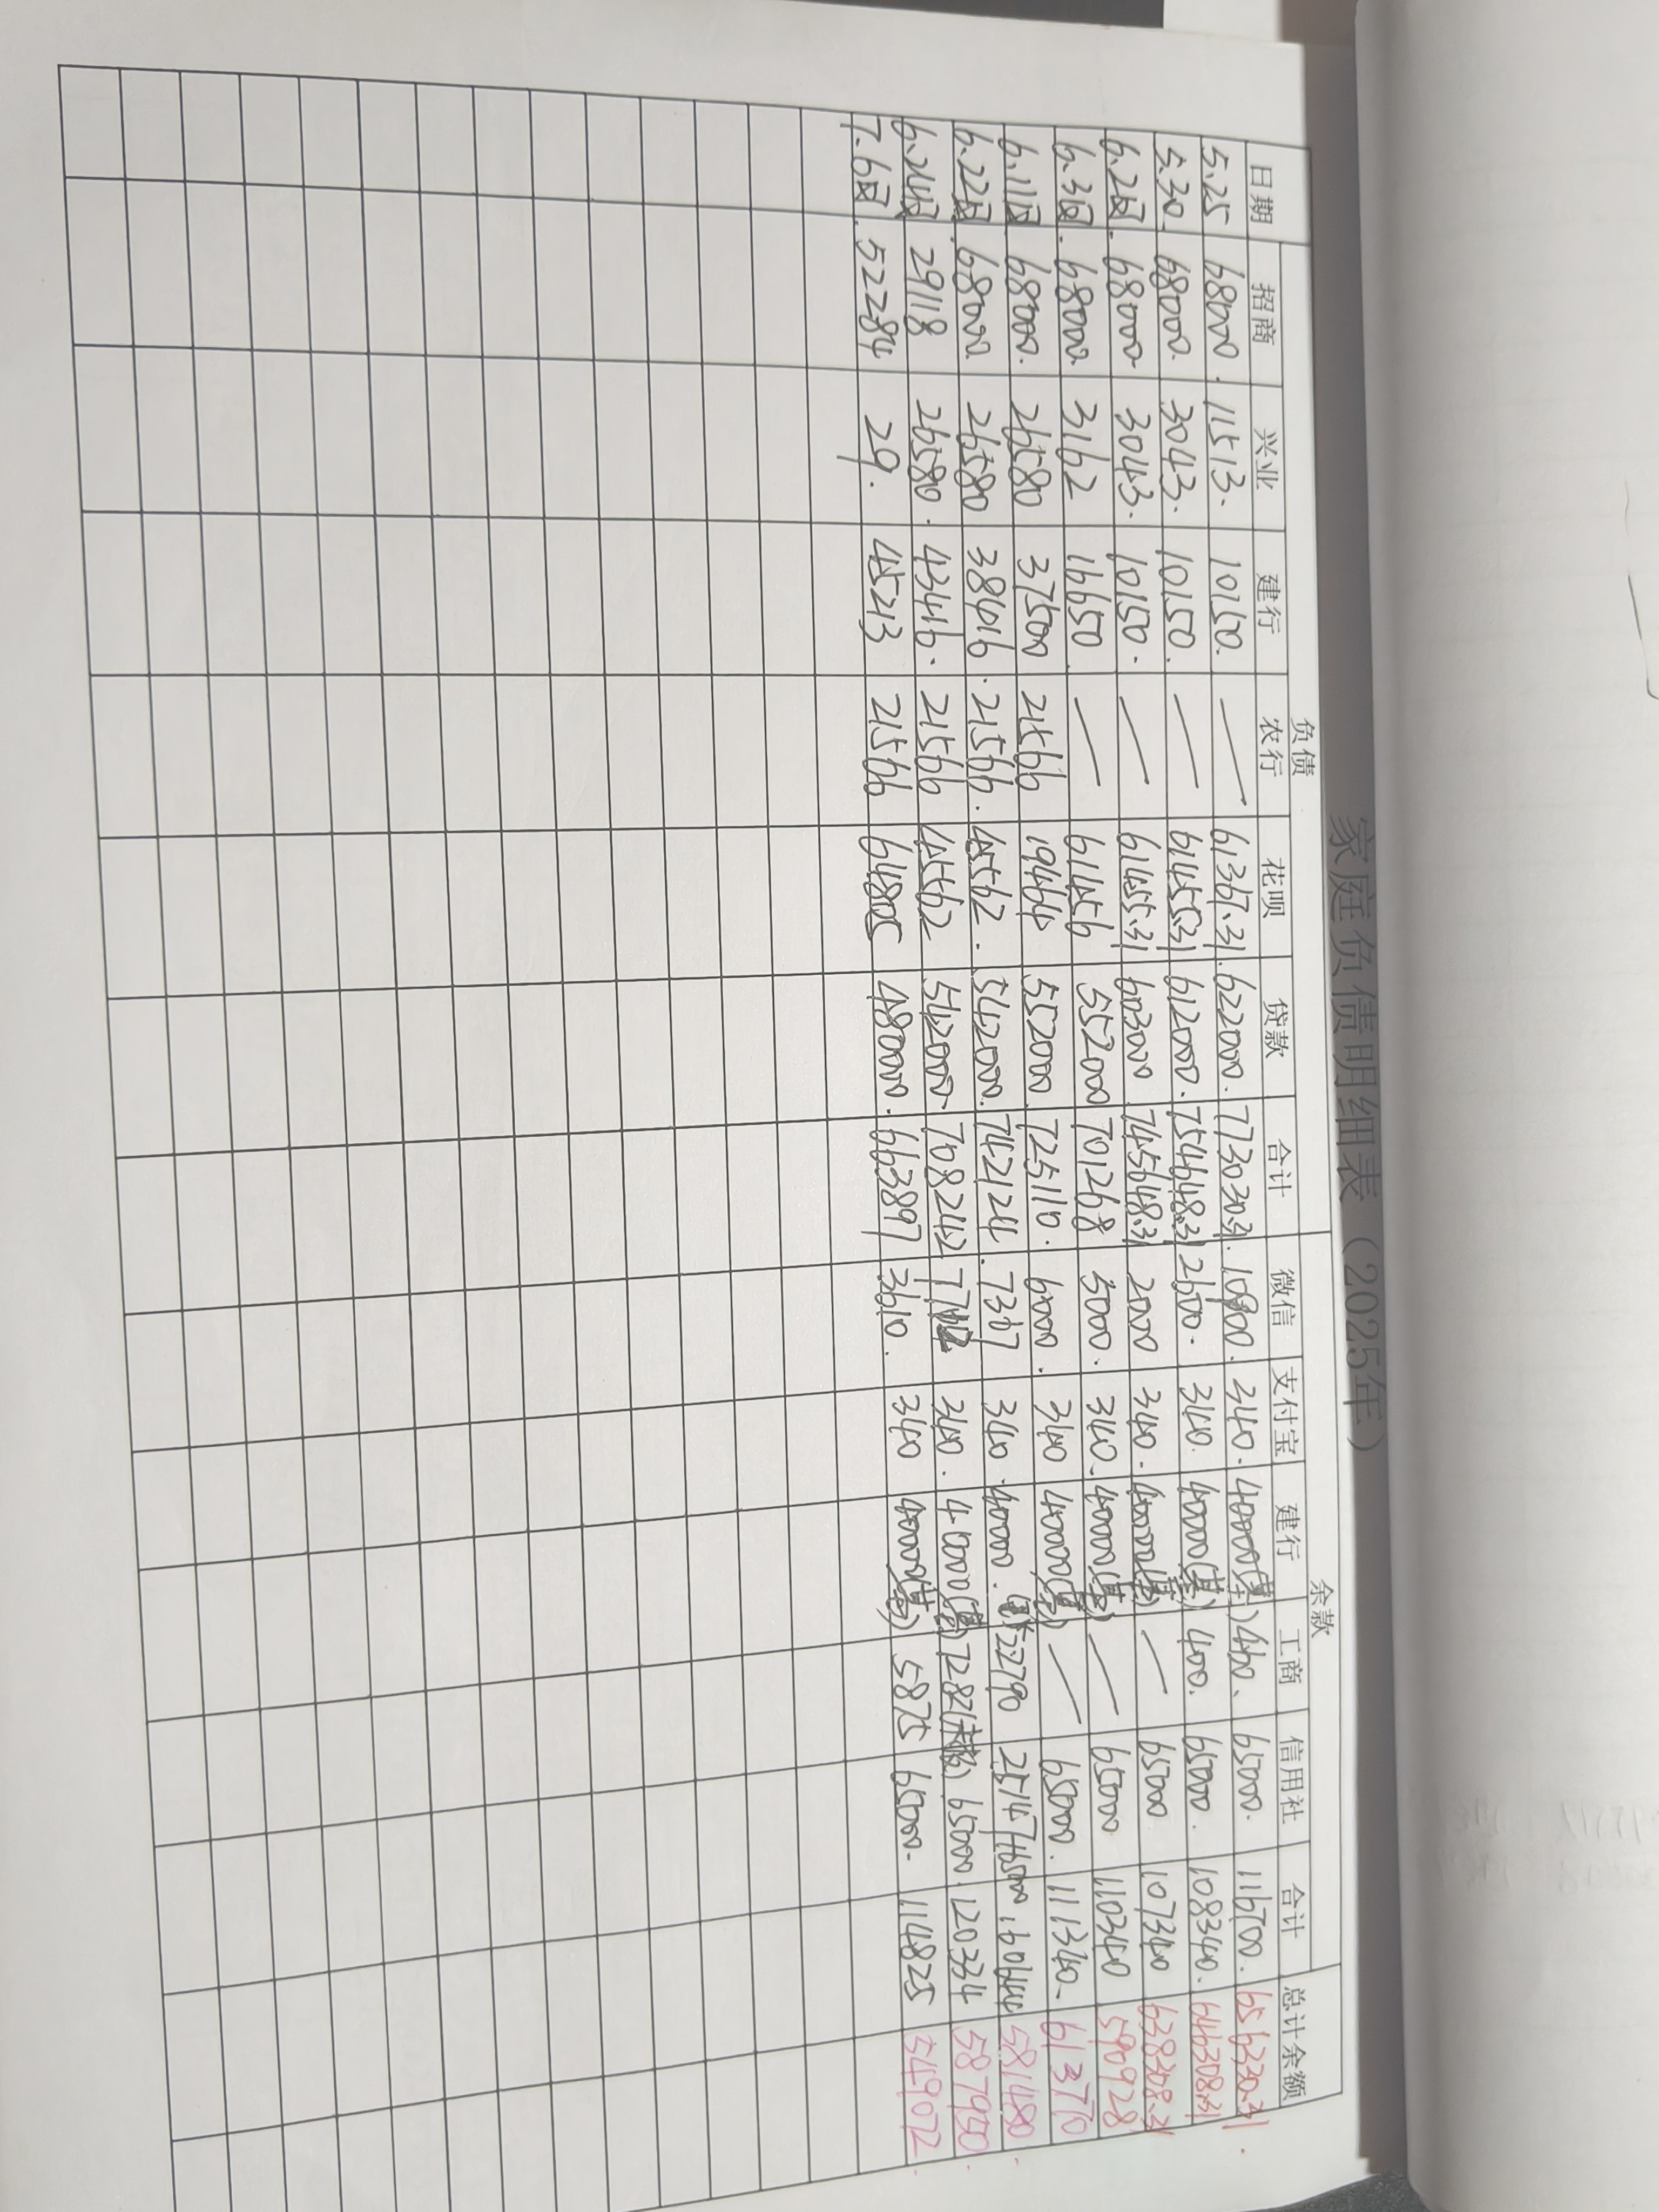 家庭负债明细表（2025年）
负债 余款
日期 招商 兴业 建行 农行 花呗 贷款 合计 微信 支付宝 建行 工商 信用社 合计 总计余额
5.25 68000. 11513. 10150. — 61367.31. 622000. 773030.31. 10900. 340. 40000 400. 65000. 116700. 656330.31.
5.30. 68000. 3043. 10150. — 61455.31 612000. 754648.31 2600. 340. 40000(基) 400. 65000. 108340. 646308.31
6.2日. 68000 3043. 10150. — 61455.31 603000 745648.31 2000 340. 40000(基) — 65000 107340 638308.31
6.3日. 68000 3162 16650. — 61456 552000 701268 5000. 340. 40000(基) — 65000 110340 590928
6.11日 68000. 26580 37500 21566 19464 552000. 725110. 6000. 340 40000(基) — 65000. 111340. 613770
6.22日. 68000. 26580 38416. 21566. 45562. 542000. 742124. 7367 340. 40000. 22790 25147 65000. 160644 581480.
6.24日 29118 26580. 43416. 21566 45562 542000. 708242 340. 40000(基) 7282 65000. 120334 587900.
7.6日. 52284 29. 45213 21566 64805 480000. 663897 3610. 340 40000(基) 5875 65000. 114825 549072.